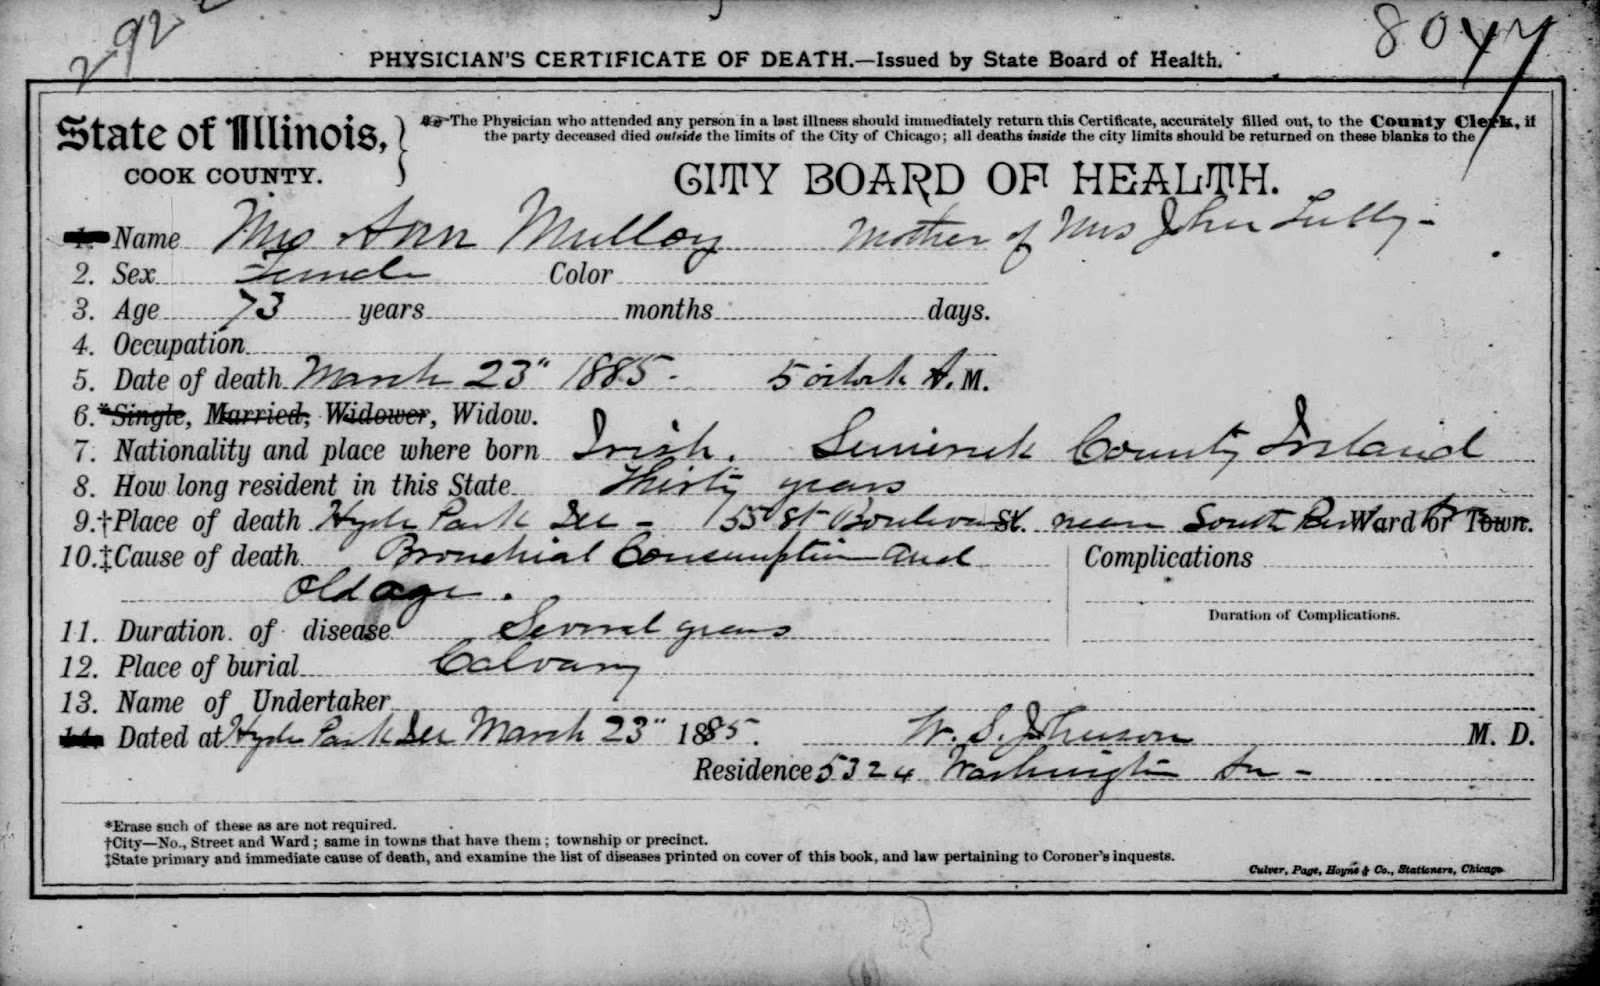 292
8047
PHYSICIAN'S CERTIFICATE OF DEATH.—Issued by State Board of Health.
State of Illinois,
COOK COUNTY.
The Physician who attended any person in a last illness should immediately return this Certificate, accurately filled out, to the County Clerk, if
the party deceased died outside the limits of the City of Chicago; all deaths inside the city limits should be returned on these blanks to the
CITY BOARD OF HEALTH.
1. Name Mrs Ann Mulloy Mother of Mrs John Tully -
2. Sex Female Color
3. Age 73 years months days.
4. Occupation
5. Date of death March 23" 1885 - 5 oclock A. M.
6.*Single, Married, Widower, Widow.
7. Nationality and place where born Irish. Limerick County Ireland
8. How long resident in this State Thirty years
9.†Place of death Hyde Park Ills - 55 St Boulevard St. near South Park Ward or Town.
10.‡Cause of death Bronchial Consumption and Complications
old age.
Duration of Complications.
11. Duration of disease Several years
12. Place of burial Calvary
13. Name of Undertaker
14. Dated at Hyde Park Ills March 23" 1885. W. S. Johnson M. D.
Residence 5324 Washington Av -
*Erase such of these as are not required.
†City—No., Street and Ward; same in towns that have them; township or precinct.
‡State primary and immediate cause of death, and examine the list of diseases printed on cover of this book, and law pertaining to Coroner's inquests.
Culver, Page, Hoyne & Co., Stationers, Chicago